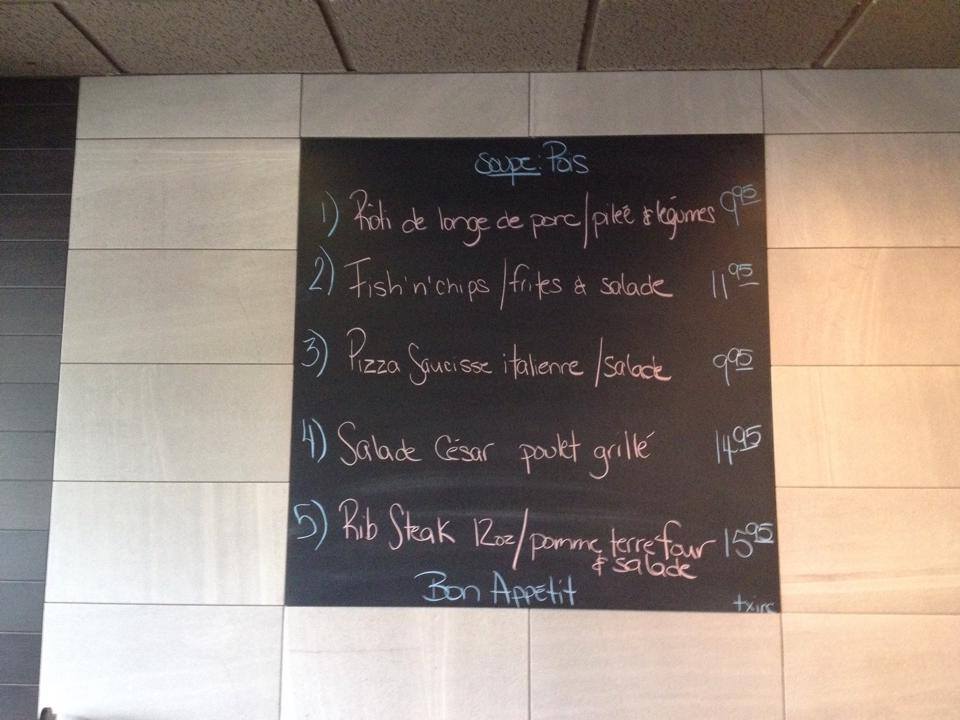 Soupe: Pois
1) Rôti de longe de porc/pileé & légumes 9 95
2) Fish 'n' chips /frites & salade 11 95
3) Pizza Saucisse italienne /salade 9 95
4) Salade César poulet grillé 14 95
5) Rib Steak 12oz/pomme terre four 15 95
& salade
Bon Appétit
tx inc